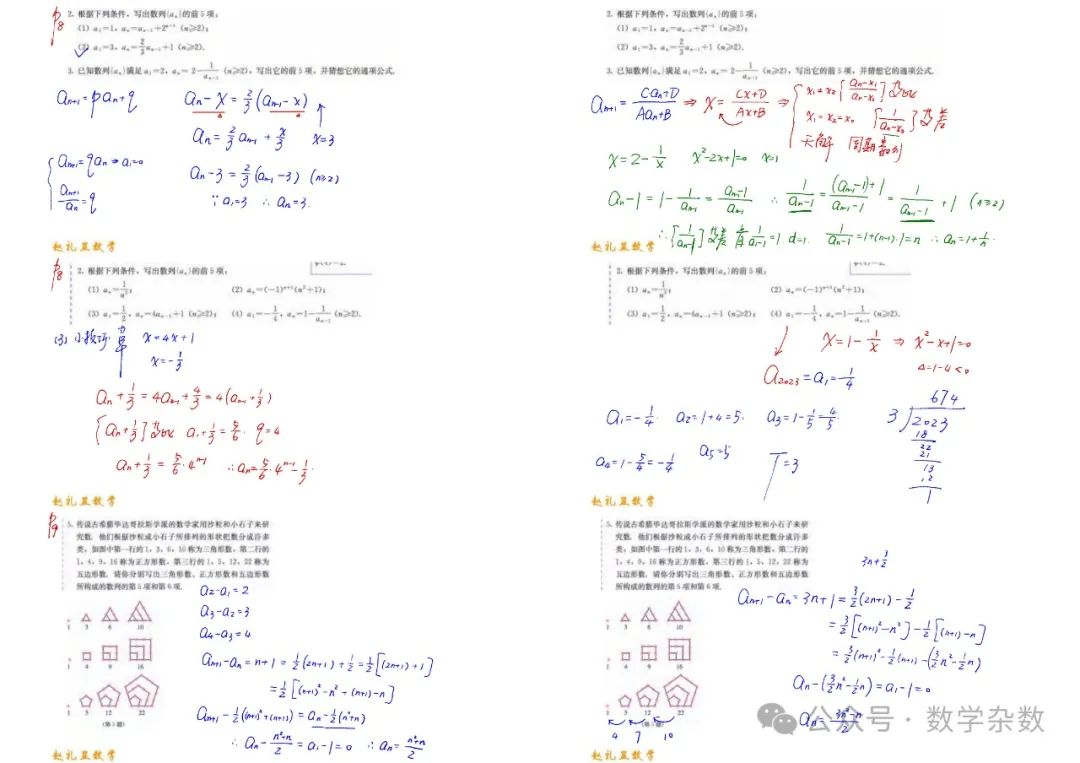 P8
2. 根据下列条件，写出数列{aₙ}的前5项：
(1) a₁=1，aₙ=aₙ₋₁+2ⁿ⁻¹ (n≥2)；
(2) a₁=3，aₙ=2/3 aₙ₋₁+1 (n≥2).
3. 已知数列{aₙ}满足a₁=2，aₙ=2-1/aₙ₋₁ (n≥2)，写出它的前5项，并猜想它的通项公式.
aₙ₊₁=paₙ+q
aₙ-x=2/3(aₙ₋₁-x)
aₙ=2/3 aₙ₋₁+x/3 x=3
aₙ₊₁=qaₙ ⇒ a₁=0
aₙ₊₁/aₙ=q
aₙ-3=2/3(aₙ₋₁-3) (n≥2)
∵a₁=3 ∴aₙ=3.
赵礼显数学
2. 根据下列条件，写出数列{aₙ}的前5项：
(1) a₁=1，aₙ=aₙ₋₁+2ⁿ⁻¹ (n≥2)；
(2) a₁=3，aₙ=2/3 aₙ₋₁+1 (n≥2).
3. 已知数列{aₙ}满足a₁=2，aₙ=2-1/aₙ₋₁ (n≥2)，写出它的前5项，并猜想它的通项公式.
aₙ₊₁=(Caₙ+D)/(Aaₙ+B) ⇒ x=(Cx+D)/(Ax+B) ⇒
x₁≠x₂ {(aₙ-x₁)/(aₙ-x₂)} 等比
x₁=x₂=x₀ {1/(aₙ-x₀)} 等差
无解 周期数列
x=2-1/x x²-2x+1=0 x=1
aₙ-1=1-1/aₙ₋₁=(aₙ₋₁-1)/aₙ₋₁ ∴1/(aₙ-1)=((aₙ₋₁-1)+1)/(aₙ₋₁-1)=1/(aₙ₋₁-1)+1 (n≥2)
∴{1/(aₙ-1)}等差 首1/(a₁-1)=1 d=1. 1/(aₙ-1)=1+(n-1)·1=n ∴aₙ=1+1/n.
赵礼显数学
P8
2. 根据下列条件，写出数列{aₙ}的前5项：
(1) aₙ=1/n²； (2) aₙ=(-1)ⁿ⁺¹(n²+1)；
(3) a₁=1/2，aₙ=4aₙ₋₁+1 (n≥2)； (4) a₁=-1/4，aₙ=1-1/aₙ₋₁ (n≥2).
(3) x=4x+1
x=-1/3
aₙ+1/3=4aₙ₋₁+4/3=4(aₙ₋₁+1/3)
{aₙ+1/3}等比 a₁+1/3=5/6. q=4
aₙ+1/3=5/6·4ⁿ⁻¹ ∴aₙ=5/6·4ⁿ⁻¹-1/3.
赵礼显数学
2. 根据下列条件，写出数列{aₙ}的前5项：
(1) aₙ=1/n²； (2) aₙ=(-1)ⁿ⁺¹(n²+1)；
(3) a₁=1/2，aₙ=4aₙ₋₁+1 (n≥2)； (4) a₁=-1/4，aₙ=1-1/aₙ₋₁ (n≥2).
x=1-1/x ⇒ x²-x+1=0
Δ=1-4<0
a₂₀₂₃=a₁=-1/4
a₁=-1/4. a₂=1+4=5. a₃=1-1/5=4/5.
a₄=1-5/4=-1/4 a₅=5 T=3
674
3 2023
18
22
21
13
12
1
赵礼显数学
P9
5. 传说古希腊毕达哥拉斯学派的数学家用沙粒和小石子来研
究数. 他们根据沙粒或小石子所排列的形状把数分成许多
类，如图中第一行的1，3，6，10称为三角形数，第二行的
1，4，9，16称为正方形数，第三行的1，5，12，22称为
五边形数. 请你分别写出三角形数、正方形数和五边形数
所构成的数列的第5项和第6项.
1 3 6 10
1 4 9 16
1 5 12 22
(第5题)
a₂-a₁=2
a₃-a₂=3
a₄-a₃=4
aₙ₊₁-aₙ=n+1=1/2(2n+1)+1/2=1/2[(2n+1)+1]
=1/2[(n+1)²-n²+(n+1)-n]
aₙ₊₁-1/2((n+1)²+(n+1))=aₙ-1/2(n²+n)
∴aₙ-(n²+n)/2=a₁-1=0 ∴aₙ=(n²+n)/2
赵礼显数学
5. 传说古希腊毕达哥拉斯学派的数学家用沙粒和小石子来研
究数. 他们根据沙粒或小石子所排列的形状把数分成许多
类，如图中第一行的1，3，6，10称为三角形数，第二行的
1，4，9，16称为正方形数，第三行的1，5，12，22称为
五边形数. 请你分别写出三角形数、正方形数和五边形数
所构成的数列的第5项和第6项.
1 3 6 10
1 4 9 16
1 5 12 22
4 7 10
3n+3/2
aₙ₊₁-aₙ=3n+1=3/2(2n+1)-1/2
=3/2[(n+1)²-n²]-1/2[(n+1)-n]
=3/2(n+1)²-1/2(n+1)-(3/2n²-1/2n)
aₙ-(3/2n²-1/2n)=a₁-1=0
aₙ=(3n²-n)/2
赵礼显数学
公众号·数学杂数